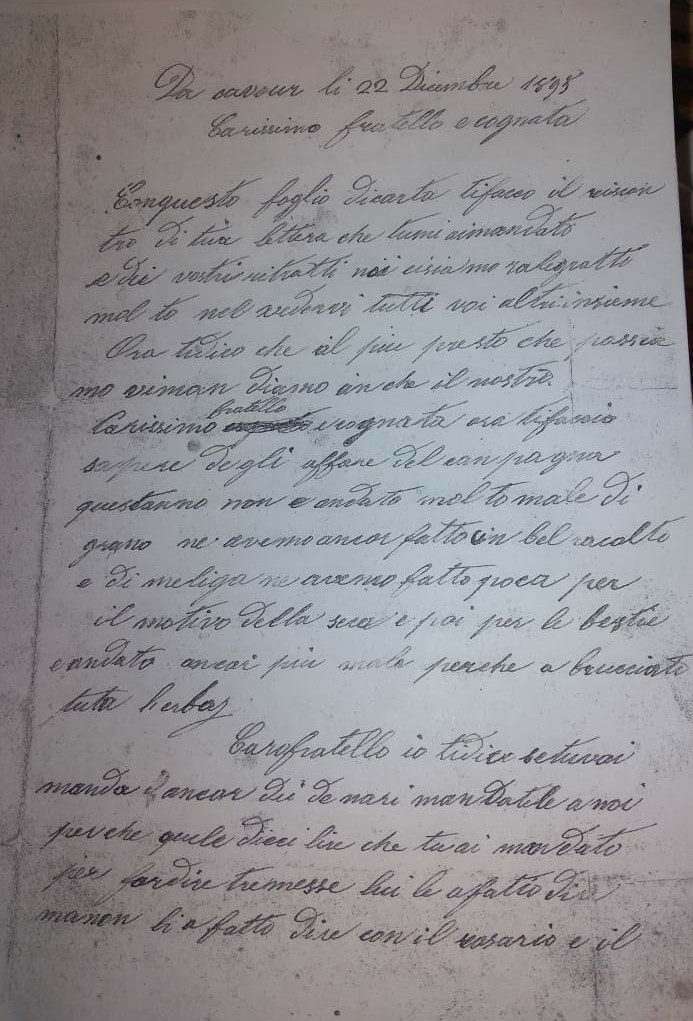 Da cavour li 22 Dicembre 1895
Carissimo fratello e cognata
Conquesto foglio dicarta tifacco il riscon
tro di tua lettera che tumi aimandato
e dei vostri ritratti noi cisiamo ralegratti
mol to nel vedervi tutti voi altri insieme
Ora tidico che al piu presto che possia
mo riman diamo an che il nostro.
fratello
Carissimo e cognata ora tifaccio
sapere degli affare del can pagna
questanno non e andato mol to male di
grano ne avemo ancor fatto un bel racolto
e di meliga ne avemo fatto poca per
il motivo della seca e poi per le bestie
e andato ancor piu male perche a bruciato
tuta herba
Carofratello io tidico setuvai
manda ancor dei denari mandatele anoi
perche quele dieci lire che tu ai mandato
per fardire tremesse lui le a fatto dire
manon li a fatto dire con il rosario e il